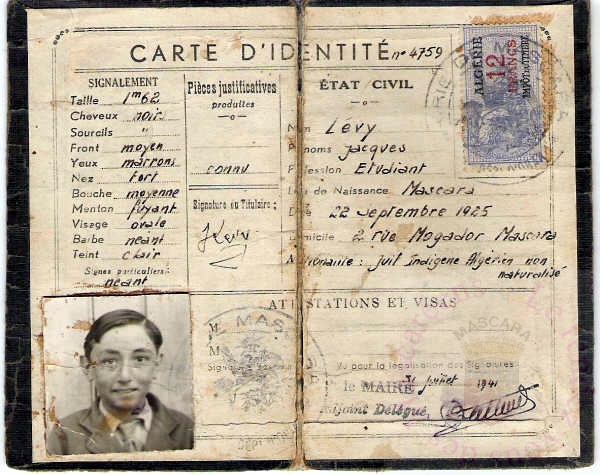 CARTE D'IDENTITÉ n° 4759
SIGNALEMENT
Taille 1m62
Cheveux noirs
Sourcils "
Front moyen
Yeux marrons
Nez fort
Bouche moyenne
Menton fuyant
Visage ovale
Barbe néant
Teint clair
Signes particuliers :
néant
Pièces justificatives
produites
connu
Signature du Titulaire :
ÉTAT CIVIL
Lévy
Prénoms Jacques
Profession Etudiant
Lieu de Naissance Mascara
22 Septembre 1925
Domicile 2 rue Mogador Mascara
juif Indigène Algérien non
naturalisé
ALGÉRIE
12
FRANCS
ATTESTATIONS ET VISAS
MAS
MASCARA
Vu pour la légalisation des Signatures
le MAIRE 31 juillet 1941
Adjoint Délégué,